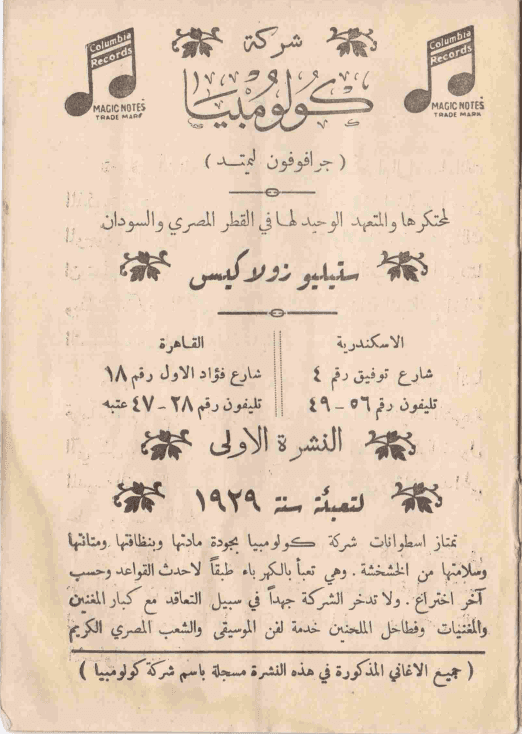 Columbia
Records
MAGIC NOTES
TRADE MARK
شركة
Columbia
Records
MAGIC NOTES
TRADE MARK
كولومبيا
( جرافوفون ليمتد )
لمحتكرها والمتعهد الوحيد لها في القطر المصري والسودان
ستيليو زولاكيس
الاسكندرية
شارع توفيق رقم ٤
تليفون رقم ٥٦ - ٤٩
القاهرة
شارع فؤاد الاول رقم ١٨
تليفون رقم ٢٨ - ٤٧ عتبه
النشرة الاولى
لتعبئة سنة ١٩٢٩
تمتاز اسطوانات شركة كولومبيا بجودة مادتها وبنظافتها ومتانتها
وسلامتها من الخشخشة . وهي تعبأ بالكهرباء طبقاً لاحدث القواعد وحسب
آخر اختراع . ولا تدخر الشركة جهداً في سبيل التعاقد مع كبار المغنين
والمغنيات وفطاحل الملحنين خدمة لفن الموسيقى والشعب المصري الكريم
( جميع الاغاني المذكورة في هذه النشرة مسجلة باسم شركة كولومبيا )